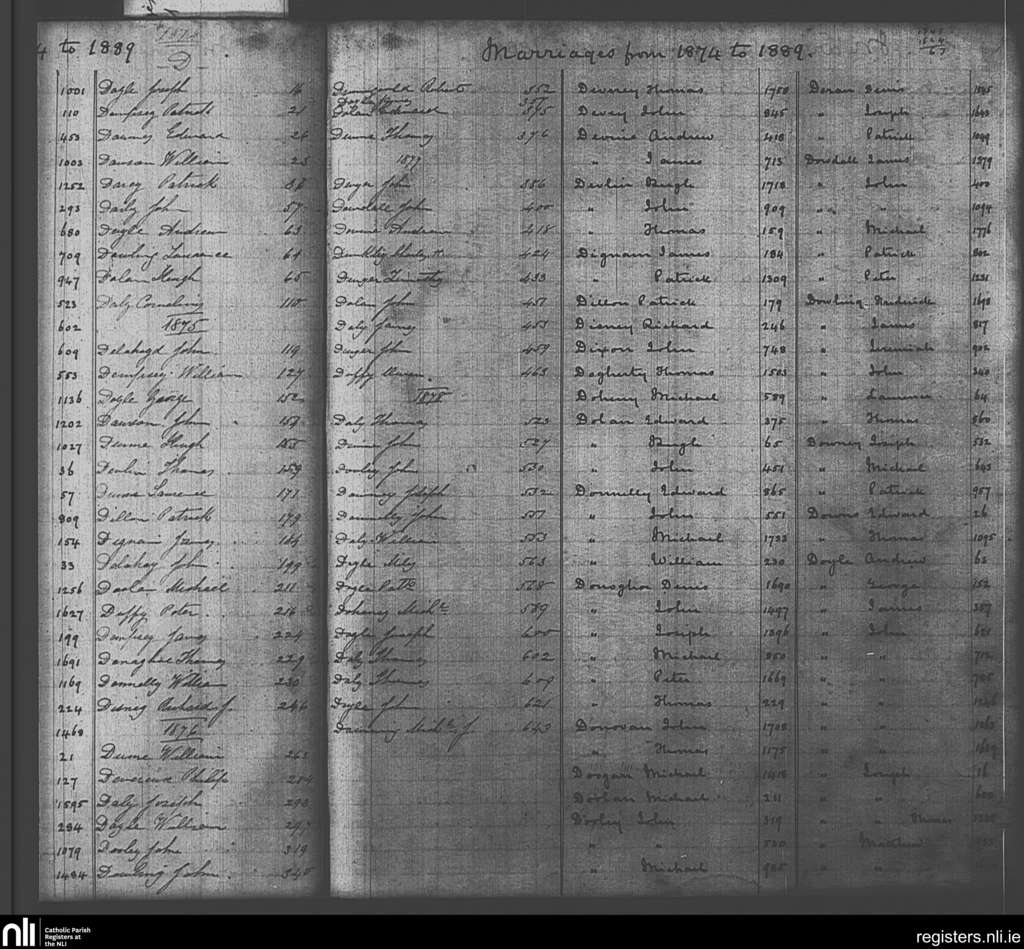 4 to 1889
1874
D
Marriages from 1874 to 1889.
1001 Doyle Joseph 16
110 Dempsey Patrick 21
453 Downey Edward 26
1003 Dawson William 25
1252 Darcy Patrick
293 Daily John 57
680 Doyle Andrew 63
709 Dowling Laurence 64
947 Dolan Hugh 65
523 Daly Cornelius 110
602 1875
609 Delahoyd John 119
553 Dempsey William 127
1136 Doyle George 152
1202 Dawson John
1027 Dunne Hugh
36 Devlin Thomas 159
57 Dunne Laurence 171
809 Dillon Patrick 179
154 Dignam James 184
33 Delahoy John 199
1256 Doolan Michael 211
1627 Duffy Peter 216
199 Dempsey James 224
1691 Donaghoe Thomas 229
1169 Donnelly William 230
224 Disney Richard J. 246
1468 1876
21 Dunne William
127 Devereux Philip
1595 Daly Joseph
284 Doyle William 297
1079 Dooley John 319
1484 Dowling John
Robert 552
Doyle James
Dolan Edward 375
Dunne Thomas 376
1877
Dwyer John 386
Dowdall John 400
Dunne Andrew 418
424
Dwyer Timothy 433
Dolan John 451
Daly James 453
Dwyer John 459
Duffy Owen 463
1878
Daly Thomas 523
Dunne John 527
Dooley John 530
Downey Joseph 532
Donnelly John 551
Daly William 553
Doyle Myles 563
Doyle Patk 568
Doheny Michl 589
Doyle Joseph 600
Daly Thomas 602
Daly Thomas 609
Doyle John 621
Downing Michl J 643
Deverey Thomas 1750
Devey John 845
Devine Andrew 418
" James 713
Devlin Hugh 1718
" John 909
" Thomas 159
Dignam James 184
" Patrick 1309
Dillon Patrick 179
Disney Richard 246
Dixon John 748
Dogherty Thomas 1503
Doheny Michael 589
Dolan Edward 375
" Hugh 65
" John 451
Donnelly Edward 865
" John 551
" Michael 1733
" William 230
Donoghoe Denis 1690
" John 1497
" Joseph 1396
" Michael 850
" Peter 1669
" Thomas 229
Donovan John 1708
" Thomas 1175
Doogan Michael 1418
Doolan Michael 211
Dooley John 319
" " 530
" Michael 985
Doran Denis
" Joseph 1643
" Patrick 1049
Dowdall James 1379
" John 400
" " 1094
" Michael 1776
" Patrick 802
" Peter 1231
Dowling Frederick 1698
" James 817
" Jeremiah 902
" John 340
" Laurence 64
" Thomas 560
Downey Joseph 532
" Michael 643
" Patrick 957
Downs Edward 26
" Thomas 1095
Doyle Andrew 63
" George 152
" James 357
" John 621
" " 712
" "
" "
" "
" "
" Joseph 16
" " 600
" " Thomas
" Matthew
" "
nli Catholic Parish
Registers at
the NLI
registers.nli.ie